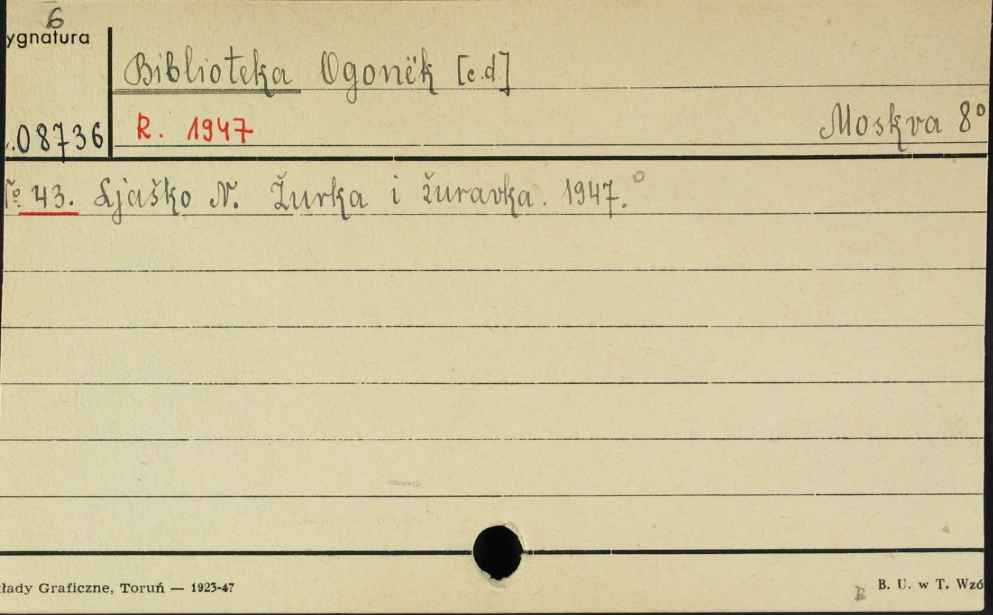 6
ygnatura
Biblioteka Ogonëk [c.d]
.08736
R. 1947
Moskva 8°
№ 43. Ljaško N. Žurka i žuravka. 1947.°
łady Graficzne, Toruń — 1923-47
B
B. U. w T. Wzó